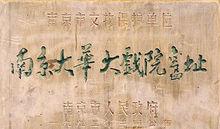 南京市文物保护单位
南京大华大戏院旧址
南京市人民政府